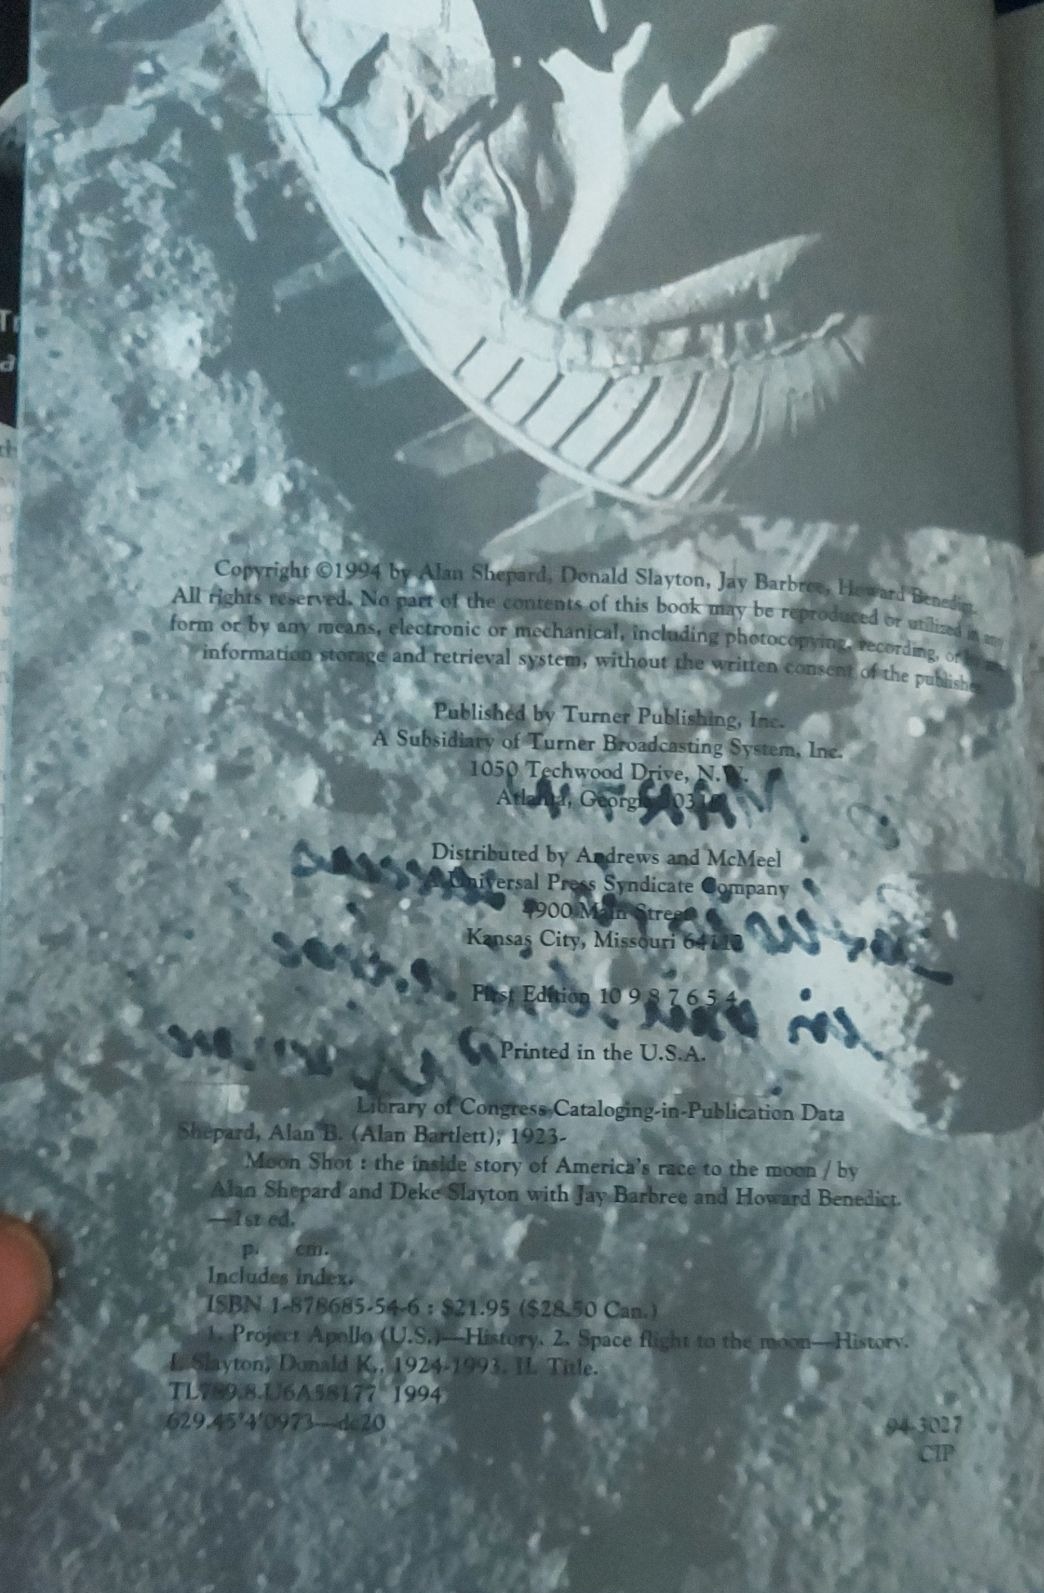 Copyright ©1994 by Alan Shepard, Donald Slayton, Jay Barbree, Howard Benedict.
All rights reserved. No part of the contents of this book may be reproduced or utilized in any
form or by any means, electronic or mechanical, including photocopying, recording, or by any
information storage and retrieval system, without the written consent of the publisher.
Published by Turner Publishing, Inc.
A Subsidiary of Turner Broadcasting System, Inc.
1050 Techwood Drive, N.W.
Atlanta, Georgia
Distributed by Andrews and McMeel
A Universal Press Syndicate Company
4900 Main Street
Kansas City, Missouri 64112
First Edition 10 9 8 7 6 5 4
Printed in the U.S.A.
Library of Congress Cataloging-in-Publication Data
Shepard, Alan B. (Alan Bartlett), 1923-
Moon Shot : the inside story of America's race to the moon / by
Alan Shepard and Deke Slayton with Jay Barbree and Howard Benedict.
—1st ed.
p. cm.
Includes index.
ISBN 1-878685-54-6 : $21.95 ($28.50 Can.)
1. Project Apollo (U.S.)—History. 2. Space flight to the moon—History.
I. Slayton, Donald K., 1924-1993. II. Title.
TL789.8.U6A58177 1994
629.45'4'0973—dc20
94-3027
CIP